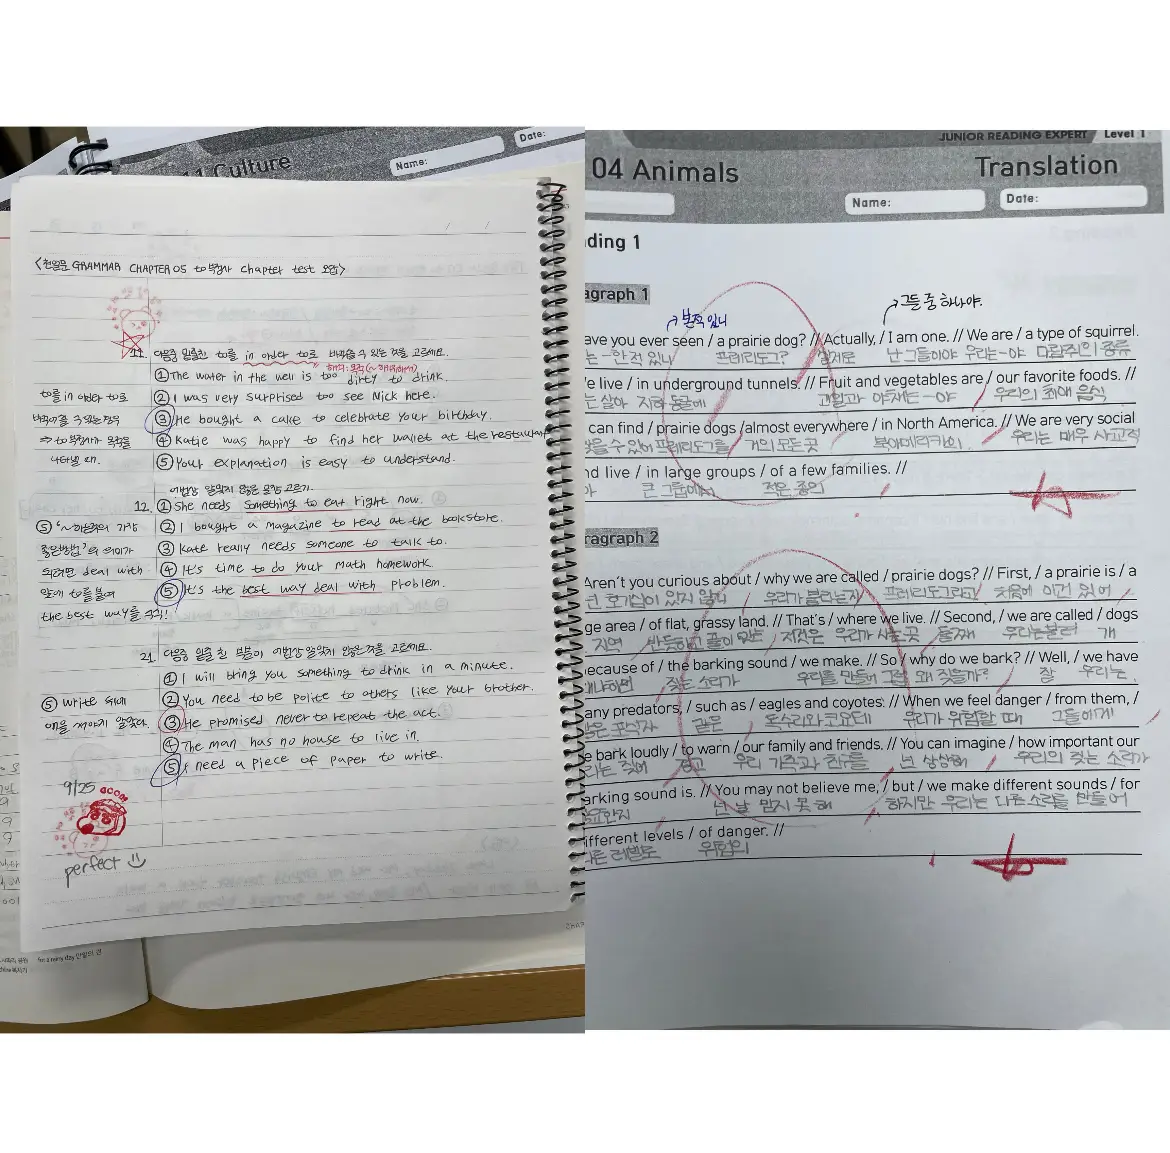 11 Culture
Name:
Date:
<천일문 GRAMMAR CHAPTER 05 to부정사 Chapter test 오답>
11. 다음중 밑줄친 to를 in order to로 바꿔쓸 수 있는 것을 고르세요.
해석: 목적(~하기위해서)
① The water in the well is too dirty to drink.
to를 in order to로
② I was very surprised too see Nick here.
바꿔쓸 수 있는 경우
③ He bought a cake to celebrate your birthday.
⇒ to부정사가 목적을
④ Katie was happy to find her wallet at the restaurant
나타낼 때.
⑤ Your explanation is easy to understand.
어법상 알맞지 않은 문장 고르기.
12. ① She needs something to eat right now.
⑤ '~하는 가장
② I bought a magazine to read at the bookstore.
좋은방법'의 의미가
③ Kate really needs someone to talk to.
되려면 deal with
④ It's time to do your math homework.
앞에 to를 붙여
⑤ It's the best way deal with problem.
the best way를 수식!
21. 다음중 밑줄 친 부분이 어법상 알맞지 않은 것을 고르세요.
① I will bring you something to drink in a minute.
⑤ write 뒤에
② You need to be polite to others like your brother.
on을 써야지 알맞다.
③ He promised never to repeat the act.
④ The man has no house to live in.
⑤ I need a piece of paper to write.
9/25
GOOD
perfect
for a rainy day
JUNIOR READING EXPERT Level 1
04 Animals
Translation
Name:
Date:
ding 1
agraph 1
본적 있니
그들 중 하나야.
ave you ever seen / a prairie dog? // Actually, / I am one. // We are / a type of squirrel.
는 한 적 있니 프레리도그? 실제로 난 그들이야 우리는 ~야 다람쥐의 종류
e live / in underground tunnels. // Fruit and vegetables are / our favorite foods. //
는 살아 지하 동굴에 과일과 야채는 ~야 우리의 최애 음식
can find / prairie dogs / almost everywhere / in North America. // We are very social
찾을 수 있어 프레리도그를 거의 모든곳 북아메리카의. 우리는 매우 사교적
nd live / in large groups / of a few families. //
큰 그룹에서 적은 종의
ragraph 2
Aren't you curious about / why we are called / prairie dogs? // First, / a prairie is / a
넌 호기심이 있지 않니 우리가 불리는지 프레리도그라고 처음에 이건 있어
ge area / of flat, grassy land. // That's / where we live. // Second, / we are called / dogs
지역 반듯하고 풀이 많은 저것은 우리가 사는 곳 둘째 우리는불러 개
ecause of / the barking sound / we make. // So / why do we bark? // Well, / we have
왜냐하면 짖는 소리가 우리를 만들어 그럼 왜 짖을까? 잘 우리는
any predators, / such as / eagles and coyotes. // When we feel danger / from them, /
많은 포식자 같은 독수리와 코요테 우리가 위험할 때 그들에게
e bark loudly / to warn / our family and friends. // You can imagine / how important our
경고 우리 가족과 친구를 넌 상상해 우리의 짖는 소리가
arking sound is. // You may not believe me, / but / we make different sounds / for
넌 날 믿지 못 해 하지만 우리는 다른 소리를 만들어
ifferent levels / of danger. //
다른 레벨로 위험의